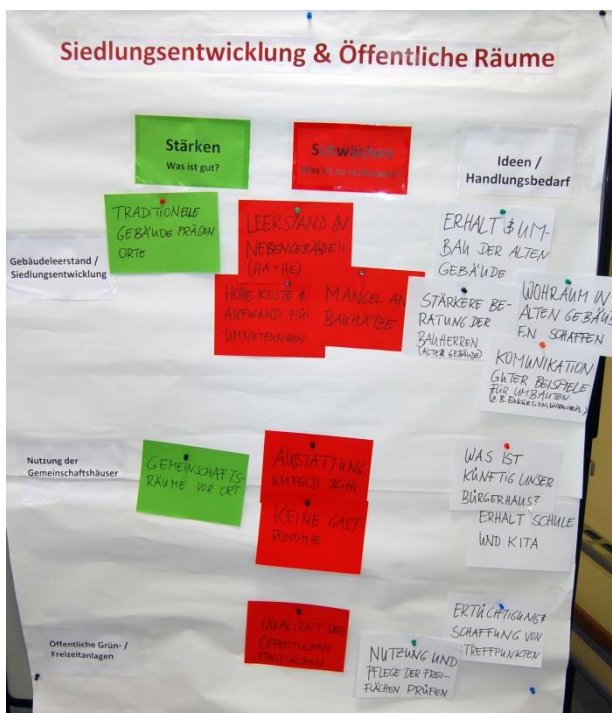 Siedlungsentwicklung & Öffentliche Räume
Stärken
Was ist gut?
Schwächen
Was ist zu
Ideen /
Handlungsbedarf
Gebäudeleerstand /
Siedlungsentwicklung
TRADITIONELLE
GEBÄUDE PRÄGEN
ORTE
LEERSTAND IN
NEBENGEBÄUDEN
(HÄ + HE)
HOHE KOSTE &
AUFWAND FÜR
UMNUTZUNGEN
MANGEL AN
BAUPLÄTZE
ERHALT & UM-
BAU DER ALTEN
GEBÄUDE
STÄRKERE BE-
RATUNG DER
BAUHERREN
(ALTER GEBÄUDE)
WOHRAUM IN
ALTEN GEBÄU
EN SCHAFFEN
KOMUNIKATION
GUTER BEISPIELE
FÜR UMBAUTEN
(Z.B. EXKURSION,
Nutzung der
Gemeinschaftshäuser
GEMEINSCHAFTS-
RÄUME VOR ORT
AUSTATTUNG
UMFELD BGHS
KEINE GAST-
RONOMIE
WAS IST
KÜNFTIG UNSER
BÜRGERHAUS?
ERHALT SCHULE
UND KITA
Öffentliche Grün- /
Freizeitanlagen
QUALITÄT DER
ÖFFENTLICHEN
FREIFLÄCHEN
NUTZUNG UND
PFLEGE DER FREI-
FLÄCHEN PRÜFEN
ERTÜCHTIGUNG &
SCHAFFUNG VON
TREFFPUNKTEN